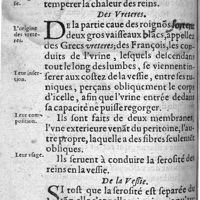 temperer la chaleur des reins.
Des Vreteres.
L'origine des vreteres.
De la partie caue des roignõs sortent
deux gros vaisseaux blãcs, appellez
des Grecs vreteres; des François, les conduits
de l'vrine, lesquels descendans
tout le long des lumbes, se viennent
Leur insertion.
serer aux costez de la vessie, entre ses tuniques,
perçans obliquement le corps
d'icelle, afin que l'vrine entrée dedans
sa capacité ne puisse regorger.
Leur composition.
Ils sont faits de deux membranes,
l'vne exterieure venāt du peritoine, l'autre
propre, laquelle a des fibres seulement
obliques.
Leur vsage.
Ils seruent à conduire la serosité des
reins en la vessie.
De la Vessie.
SI tost que la serosité est separée du